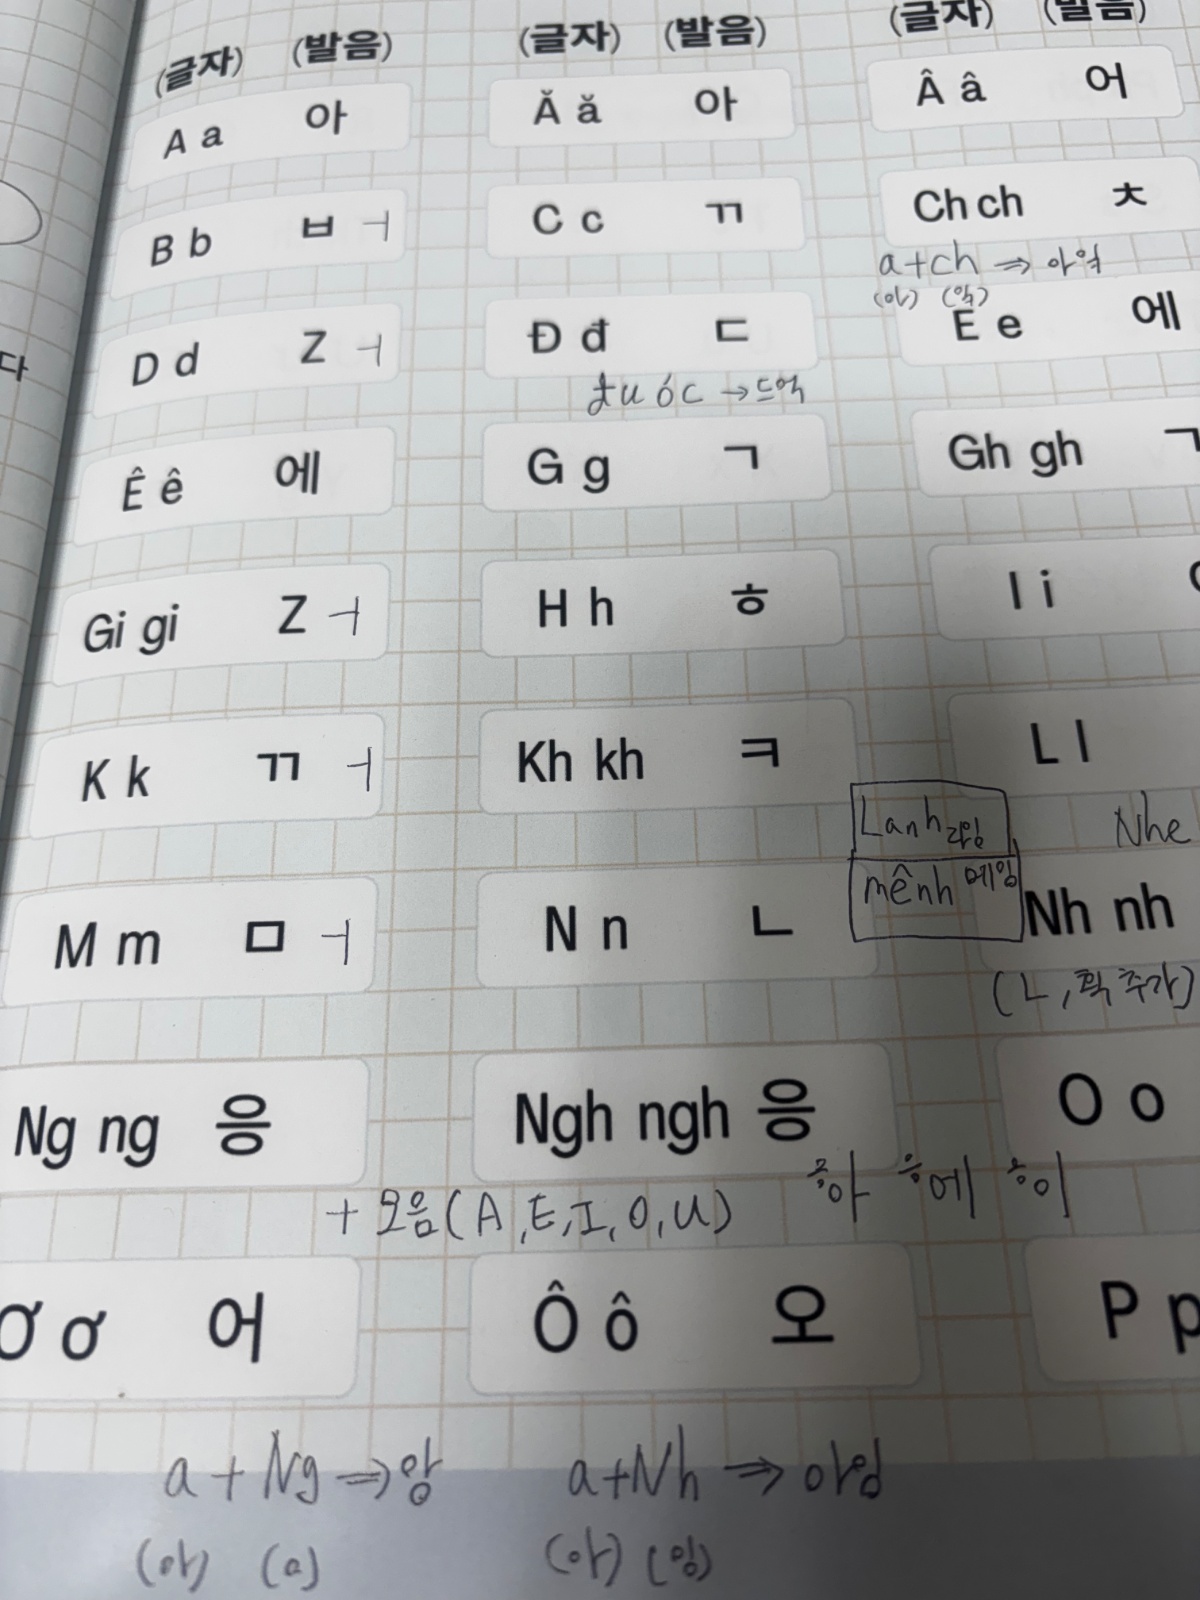 (글자) (발음) (글자) (발음) (글자) (발음)
A a 아 Ă ă 아 Â â 어
B b ㅂ ㅓ C c ㄲ Ch ch ㅊ
a+ch ⇒ 아익
(아) (익)
다
D d Z ㅓ Đ đ ㄷ E e 에
đu óc → 드억
Ê ê 에 G g ㄱ Gh gh ㄱ
Gi gi Z ㅓ H h ㅎ I i
K k ㄲ ㅓ Kh kh ㅋ L l
Lanh 라잉 Nhe
mênh 메잉
M m ㅁ ㅓ N n ㄴ Nh nh
(ㄴ, 획 추가)
Ng ng 응 Ngh ngh 응 O o
+ 모음(A, E, I, O, U) 응아 응에 응이
Ơ ơ 어 Ô ô 오 P p
a + Ng ⇒ 앙 a+Nh ⇒ 아잉
(아) (ㅇ) (아) (잉)